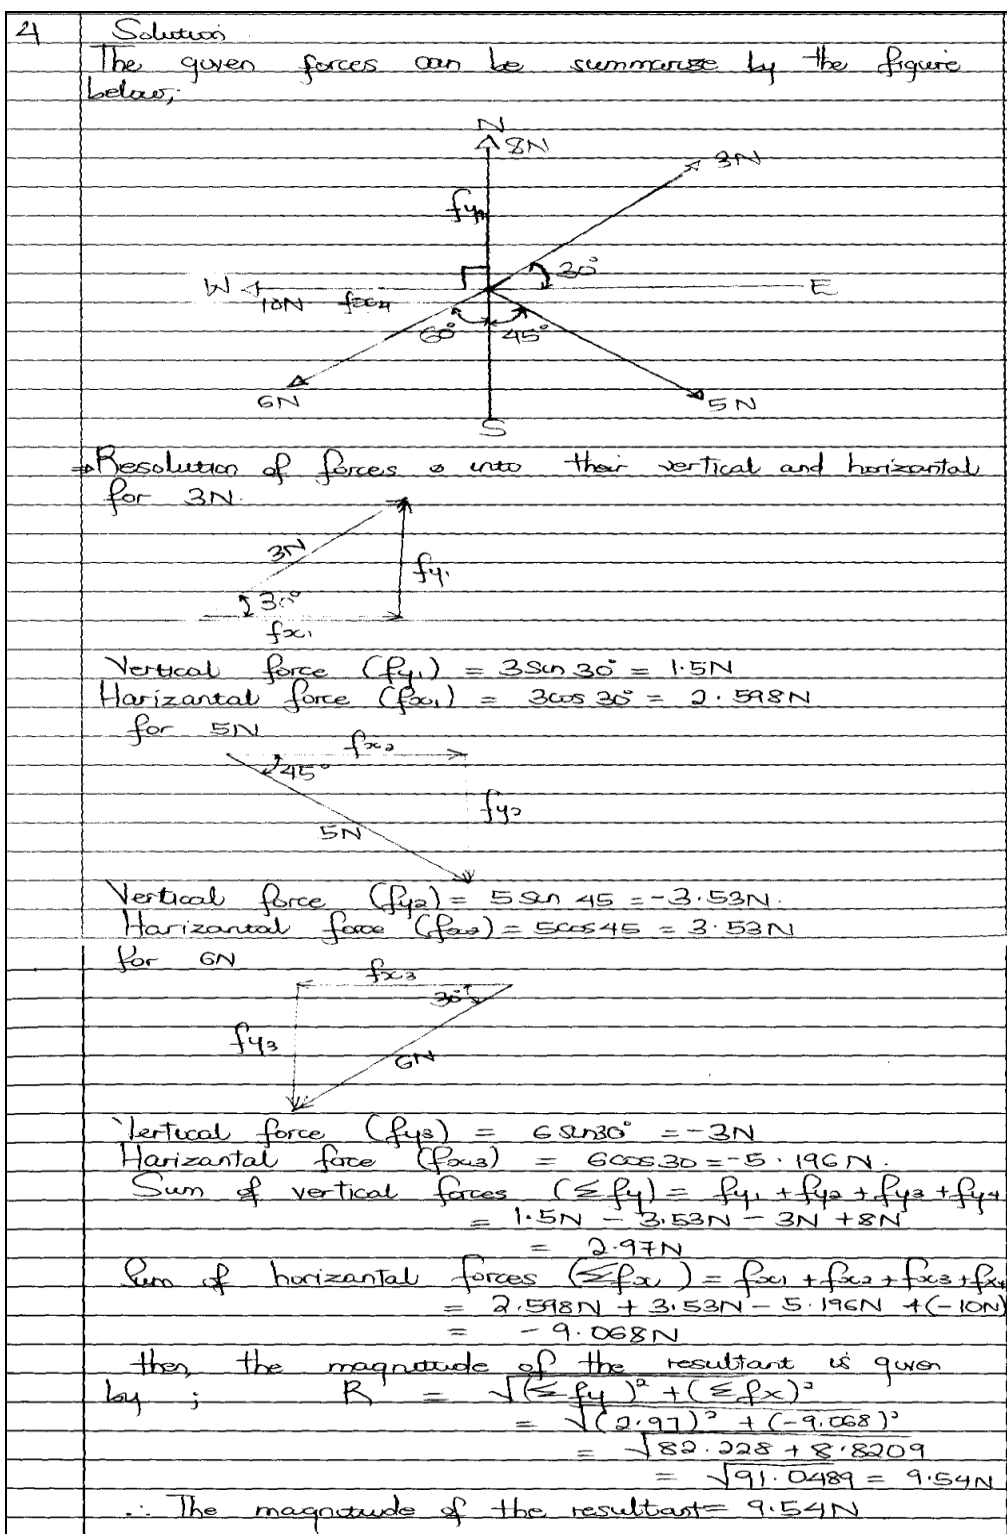 4 Solution
The given forces can be summarise by the figure
below;
N
8N
3N
fy4
30°
W E
10N fx4
60° 45°
6N 5N
S
⇒ Resolution of forces into their vertical and horizantal
for 3N.
3N
fy1
30°
fx1
Vertical force (fy1) = 3sin 30° = 1.5N
Harizantal force (fx1) = 3cos 30° = 2.598N
for 5N
fx2
45°
fy2
5N
Vertical force (fy2) = 5 sin 45 = -3.53N.
Harizantal force (fx2) = 5cos45 = 3.53N
for 6N
fx3
30°
fy3
6N
Vertical force (fy3) = 6 sin30° = -3N
Harizantal force (fx3) = 6cos.30 = -5.196N.
Sum of vertical forces (Σfy) = fy1 + fy2 + fy3 + fy4
= 1.5N - 3.53N - 3N + 8N
= 2.97N
Sum of horizantal forces (Σfx) = fx1 + fx2 + fx3 + fx4
= 2.598N + 3.53N - 5.196N + (-10N)
= -9.068N
then, the magnitude of the resultant is given
by ; R = √(Σfy)² + (Σfx)²
= √(2.97)² + (-9.068)²
= √82.228 + 8.8209
= √91.0489 = 9.54N
∴ The magnitude of the resultant = 9.54N